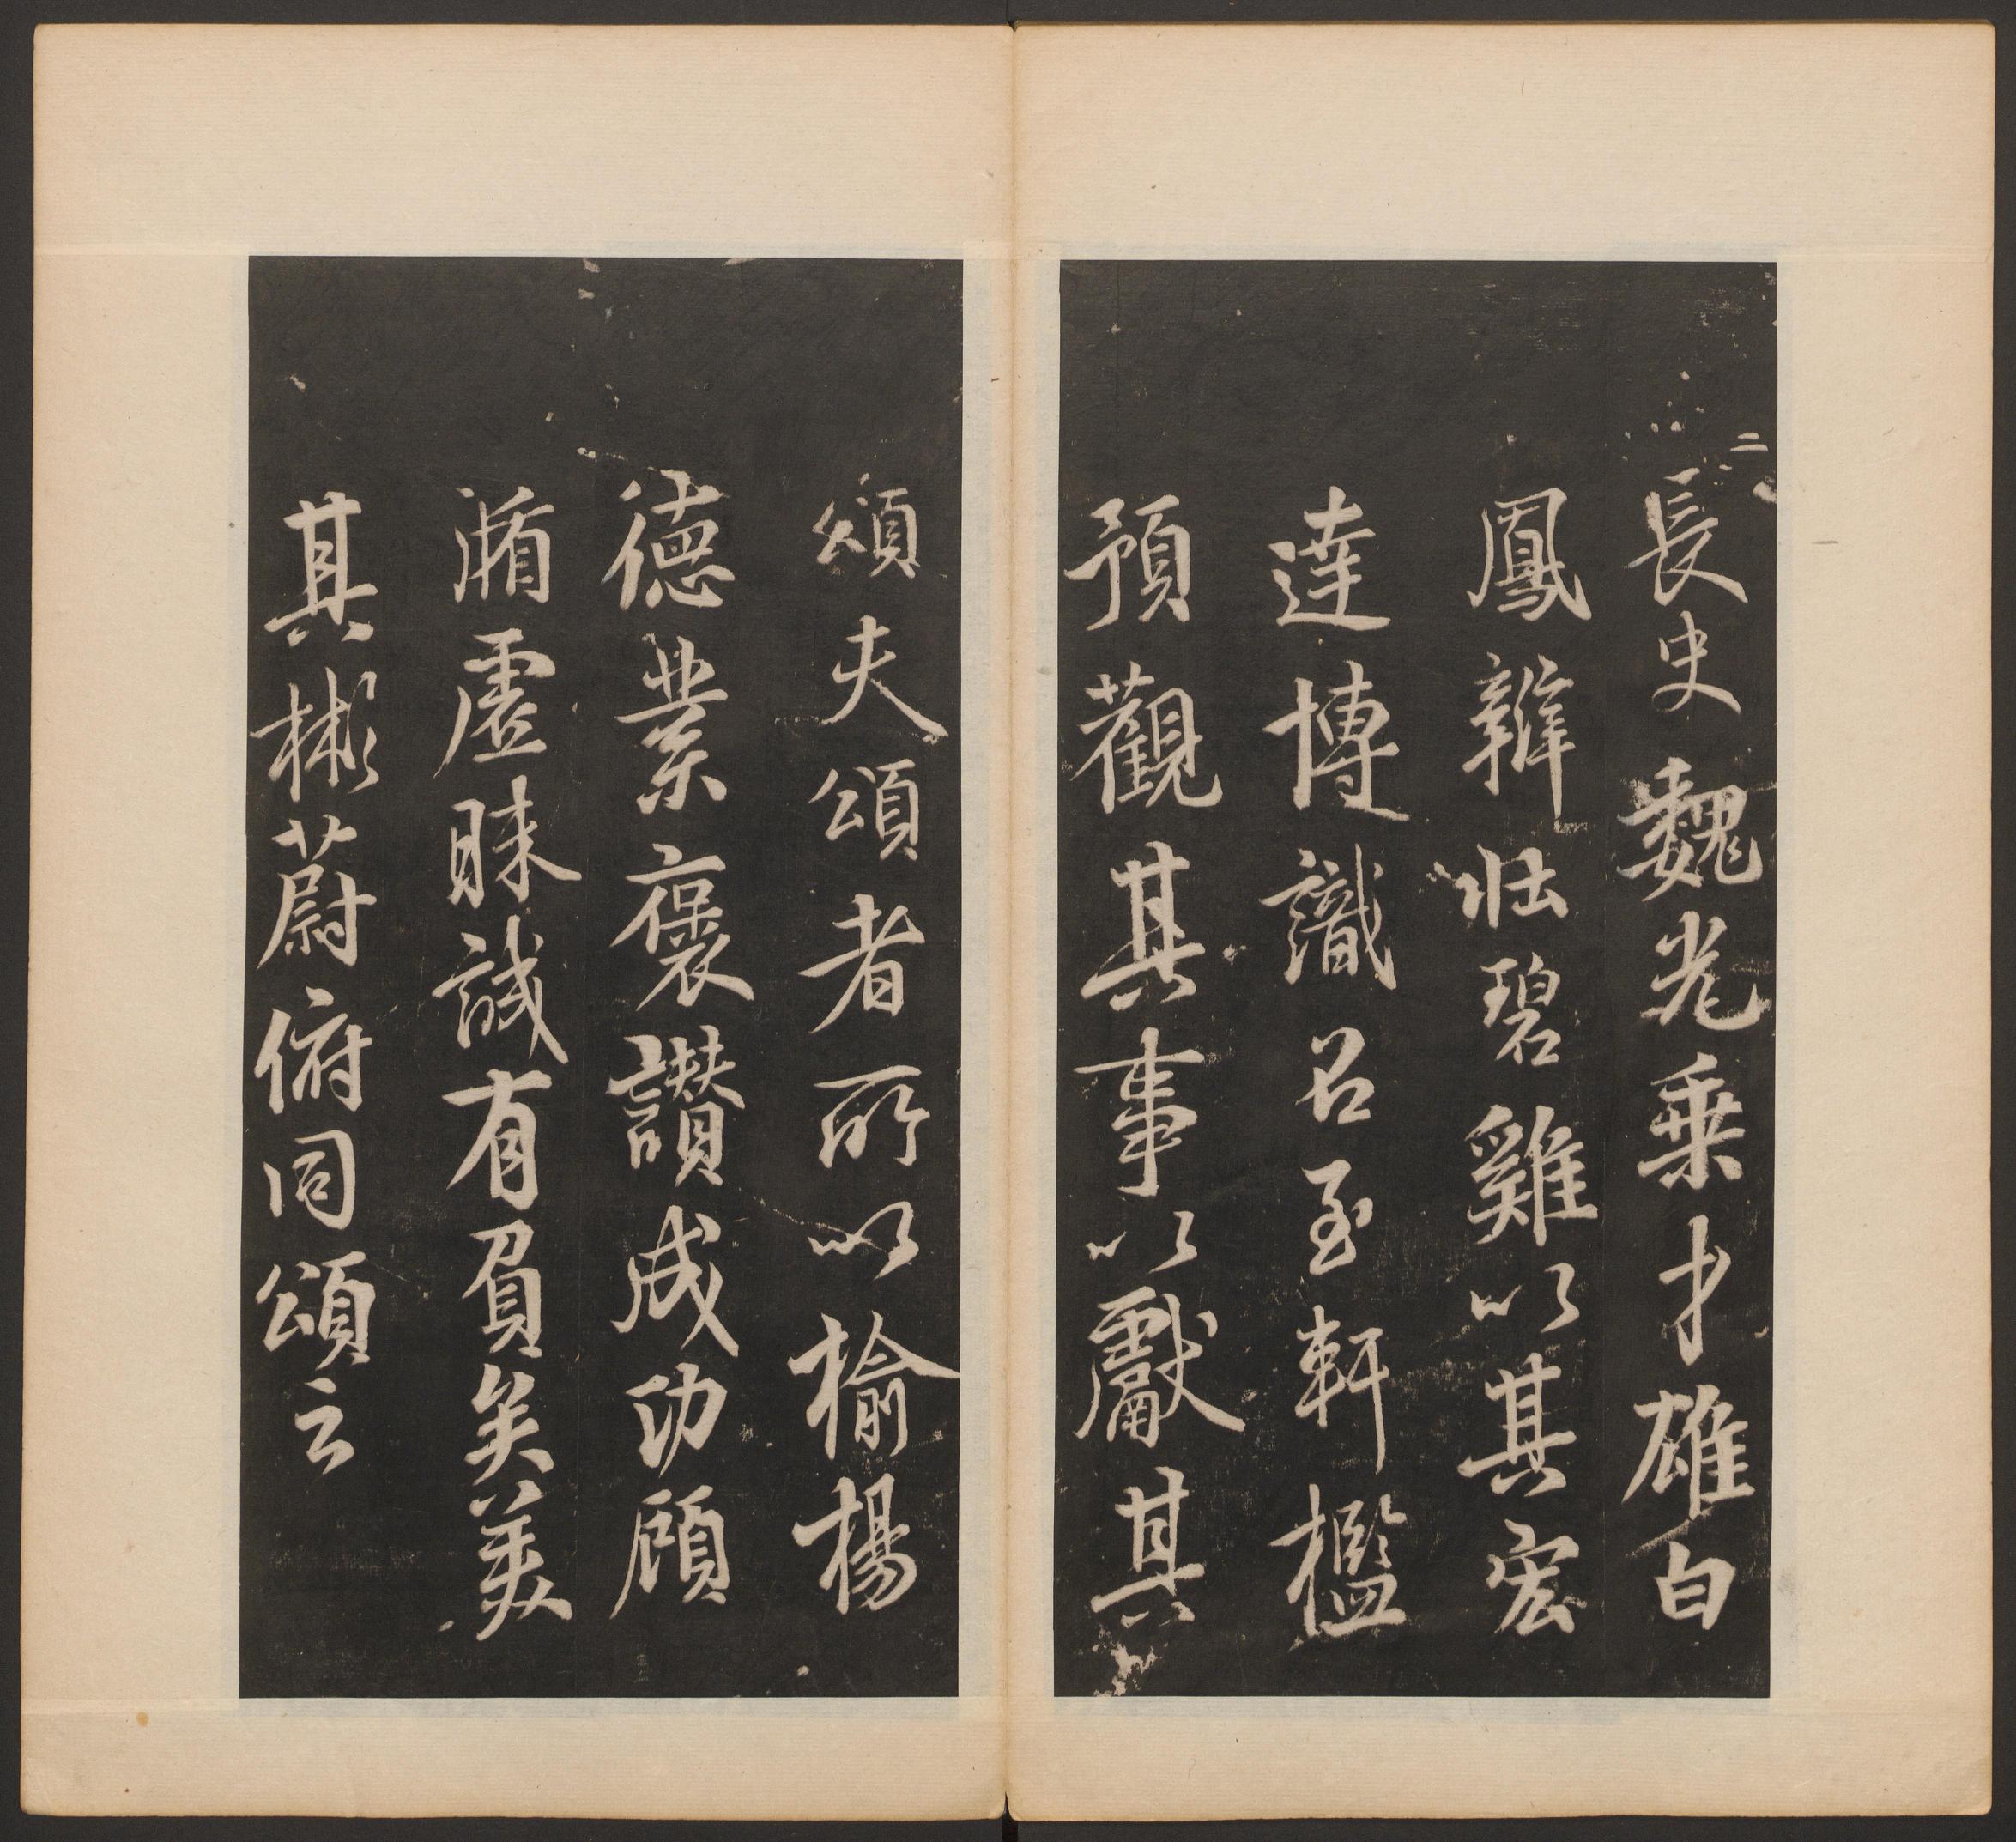 二
長史魏光乘才雄白
鳳辯壯碧雞以其宏
達博識召至軒檻
預觀其事以獻其
頌夫頌者所以榆楊
德業褒讃成功顧
循虛昧誠有負矣美
其彬蔚俯同頌云